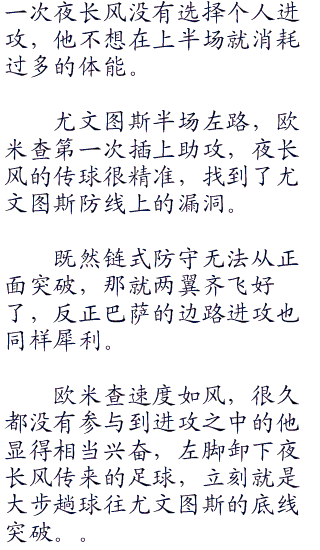 一次夜长风没有选择个人进
攻，他不想在上半场就消耗
过多的体能。
尤文图斯半场左路，欧
米查第一次插上助攻，夜长
风的传球很精准，找到了尤
文图斯防线上的漏洞。
既然链式防守无法从正
面突破，那就两翼齐飞好
了，反正巴萨的边路进攻也
同样犀利。
欧米查速度如风，很久
都没有参与到进攻之中的他
显得相当兴奋，左脚卸下夜
长风传来的足球，立刻就是
大步趟球往尤文图斯的底线
突破。。